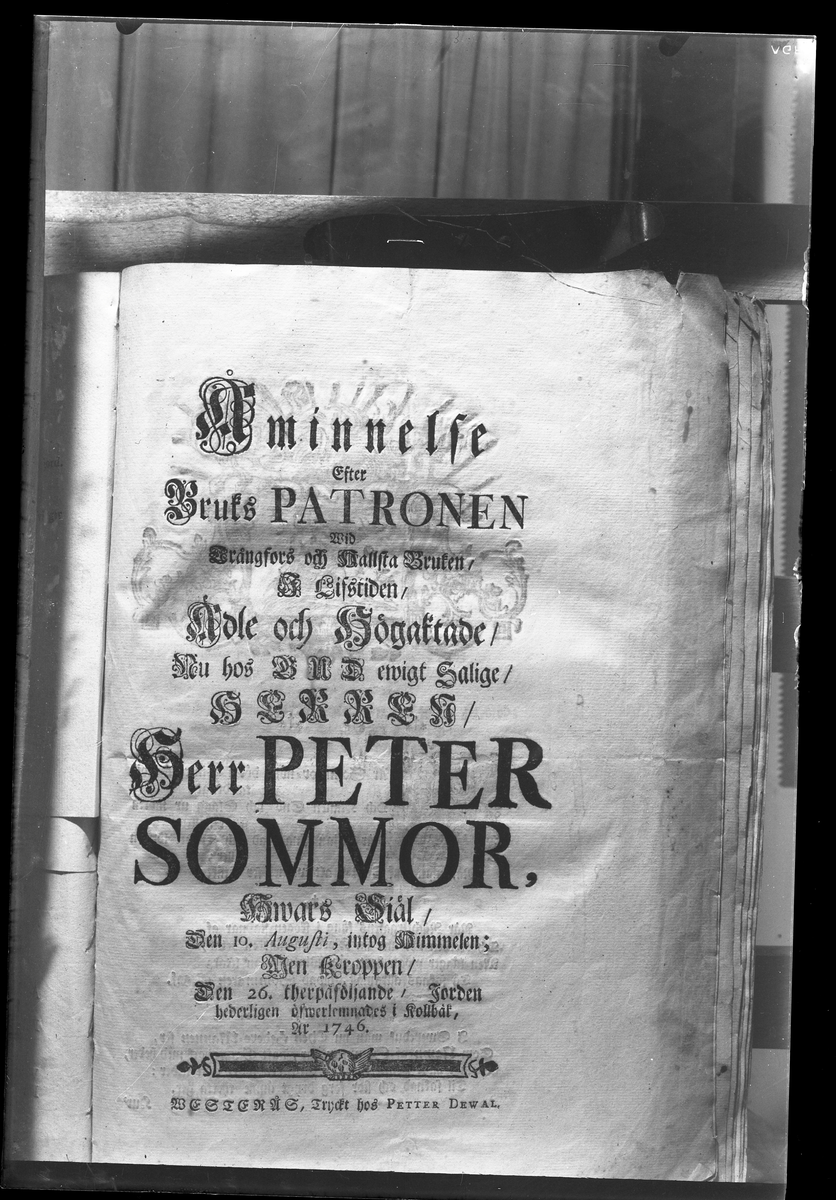 Åminnelse
Efter
Bruks PATRONEN
Wid
Trångfors och Hallsta Bruken/
I Lifstiden/
Ädle och Högaktade/
Nu hos GUD ewigt Salige/
HERREN/
Herr PETER
SOMMOR,
Hwars Siäl/
Den 10. Augusti, intog Himmelen;
Men Kroppen/
Den 26. therpåföljande/ Jorden
hederligen öfwerlemnades i Kollbäk,
År 1746.
WESTERÅS, Tryckt hos PETTER DEWAL.